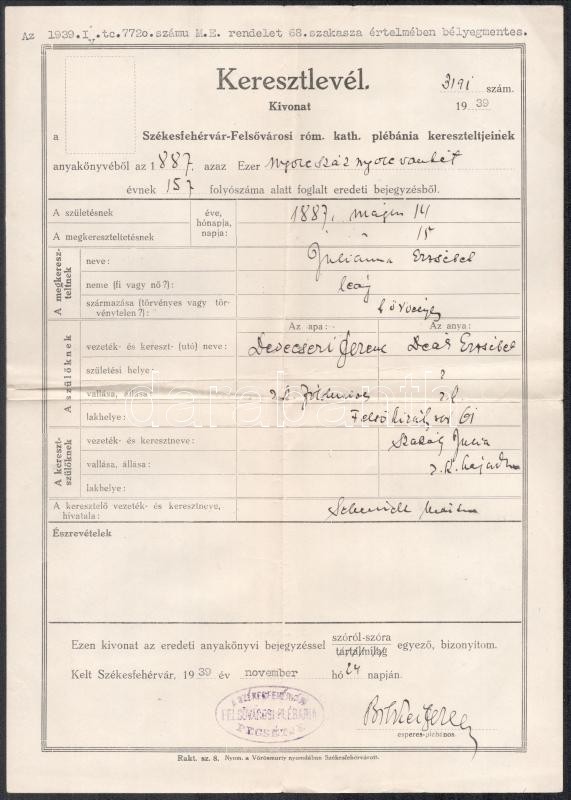 Az 1939.IV.tc.7720.számu M.E. rendelet 68.szakasza értelmében bélyegmentes.
Keresztlevél.
Kivonat
3191 szám.
1939
a Székesfehérvár-Felsővárosi róm. kath. plébánia kereszteltjeinek
anyakönyvéből az 1887. azaz Ezer nyolcszáz nyolcvanhét
évnek 157 folyószáma alatt foglalt eredeti bejegyzésből.
A születésnek
A megkereszteltetésnek
éve, hónapja, napja:
1887. május 14
" " 15
A megkereszteltnek
neve: Julianna Erzsébet
neme (fi vagy nő?): leány
származása (törvényes vagy törvénytelen?): törvényes
A szülőknek
Az apa: Az anya:
vezeték- és kereszt- (utó) neve: Devecseri Ferenc Deák Erzsébet
születési helye: ?
vallása, állása: r.k. földműves r.k.
lakhelye: Felsőkirálysor 61
A keresztszülőknek
vezeték- és keresztneve: Szabály Julia
vallása, állása: r.k. hajadon
lakhelye:
A keresztelő vezeték- és keresztneve, hivatala: Schmidt
Észrevételek
Ezen kivonat az eredeti anyakönyvi bejegyzéssel szóról-szóra tartalmilag egyező, bizonyítom.
Kelt Székesfehérvár, 1939 év november hó 24 napján.
A SZÉKESFEHÉRVÁR
FELSŐVÁROSI PLÉBÁNIA
PECSÉTJE
esperes-plébános
Rakt. sz. 8. Nyom. a Vörösmarty nyomdában Székesfehérvárott.
darabanth